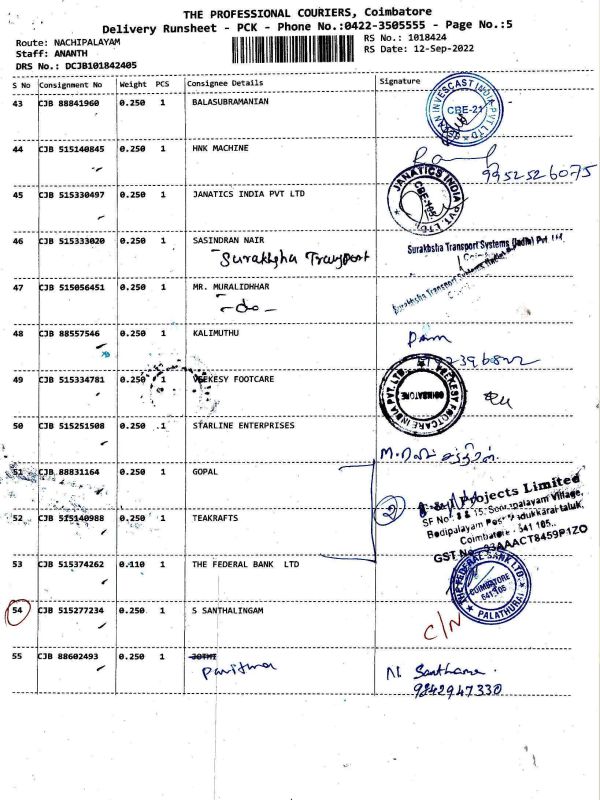 THE PROFESSIONAL COURIERS, Coimbatore
Delivery Runsheet - PCK - Phone No.:0422-3505555 - Page No.:5
Route: NACHIPALAYAM
Staff: ANANTH
DRS No.: DCJB101842405
RS No.: 1018424
RS Date: 12-Sep-2022
S No Consignment No Weight PCS Consignee Details Signature
43 CJB 88841960 0.250 1 BALASUBRAMANIAN
CBE-21
44 CJB 515140845 0.250 1 HNK MACHINE
9952526075
45 CJB 515330497 0.250 1 JANATICS INDIA PVT LTD
JANATICS INDIA PVT. LTD.
CBE-105
46 CJB 515333020 0.250 1 SASINDRAN NAIR
Surakhsha Transport
Surakhsha Transport Systems (India) Pvt. Ltd.
47 CJB 515056451 0.250 1 MR. MURALIDHHAR
-do-
Surakhsha Transport Systems
48 CJB 88557546 0.250 1 KALIMUTHU
49 CJB 515334781 0.250 1 VEEKESY FOOTCARE
VEEKESY FOOTCARE INDIA PVT. LTD.
COIMBATORE
50 CJB 515251508 0.250 1 STARLINE ENTERPRISES
51 CJB 88831164 0.250 1 GOPAL
Projects Limited
SF No. 8 & 15, Village,
52 CJB 515140988 0.250 1 TEAKRAFTS
Bodipalayam Post taluk,
Coimbatore - 641 105.
GST No. 33AAACT8459P1ZO
53 CJB 515374262 0.110 1 THE FEDERAL BANK LTD
THE FEDERAL BANK LTD.
COIMBATORE
641 105
PALATHURAI
54 CJB 515277234 0.250 1 S SANTHALINGAM
C/N
55 CJB 88602493 0.250 1 JOTHI
N. Santhana
9842947330